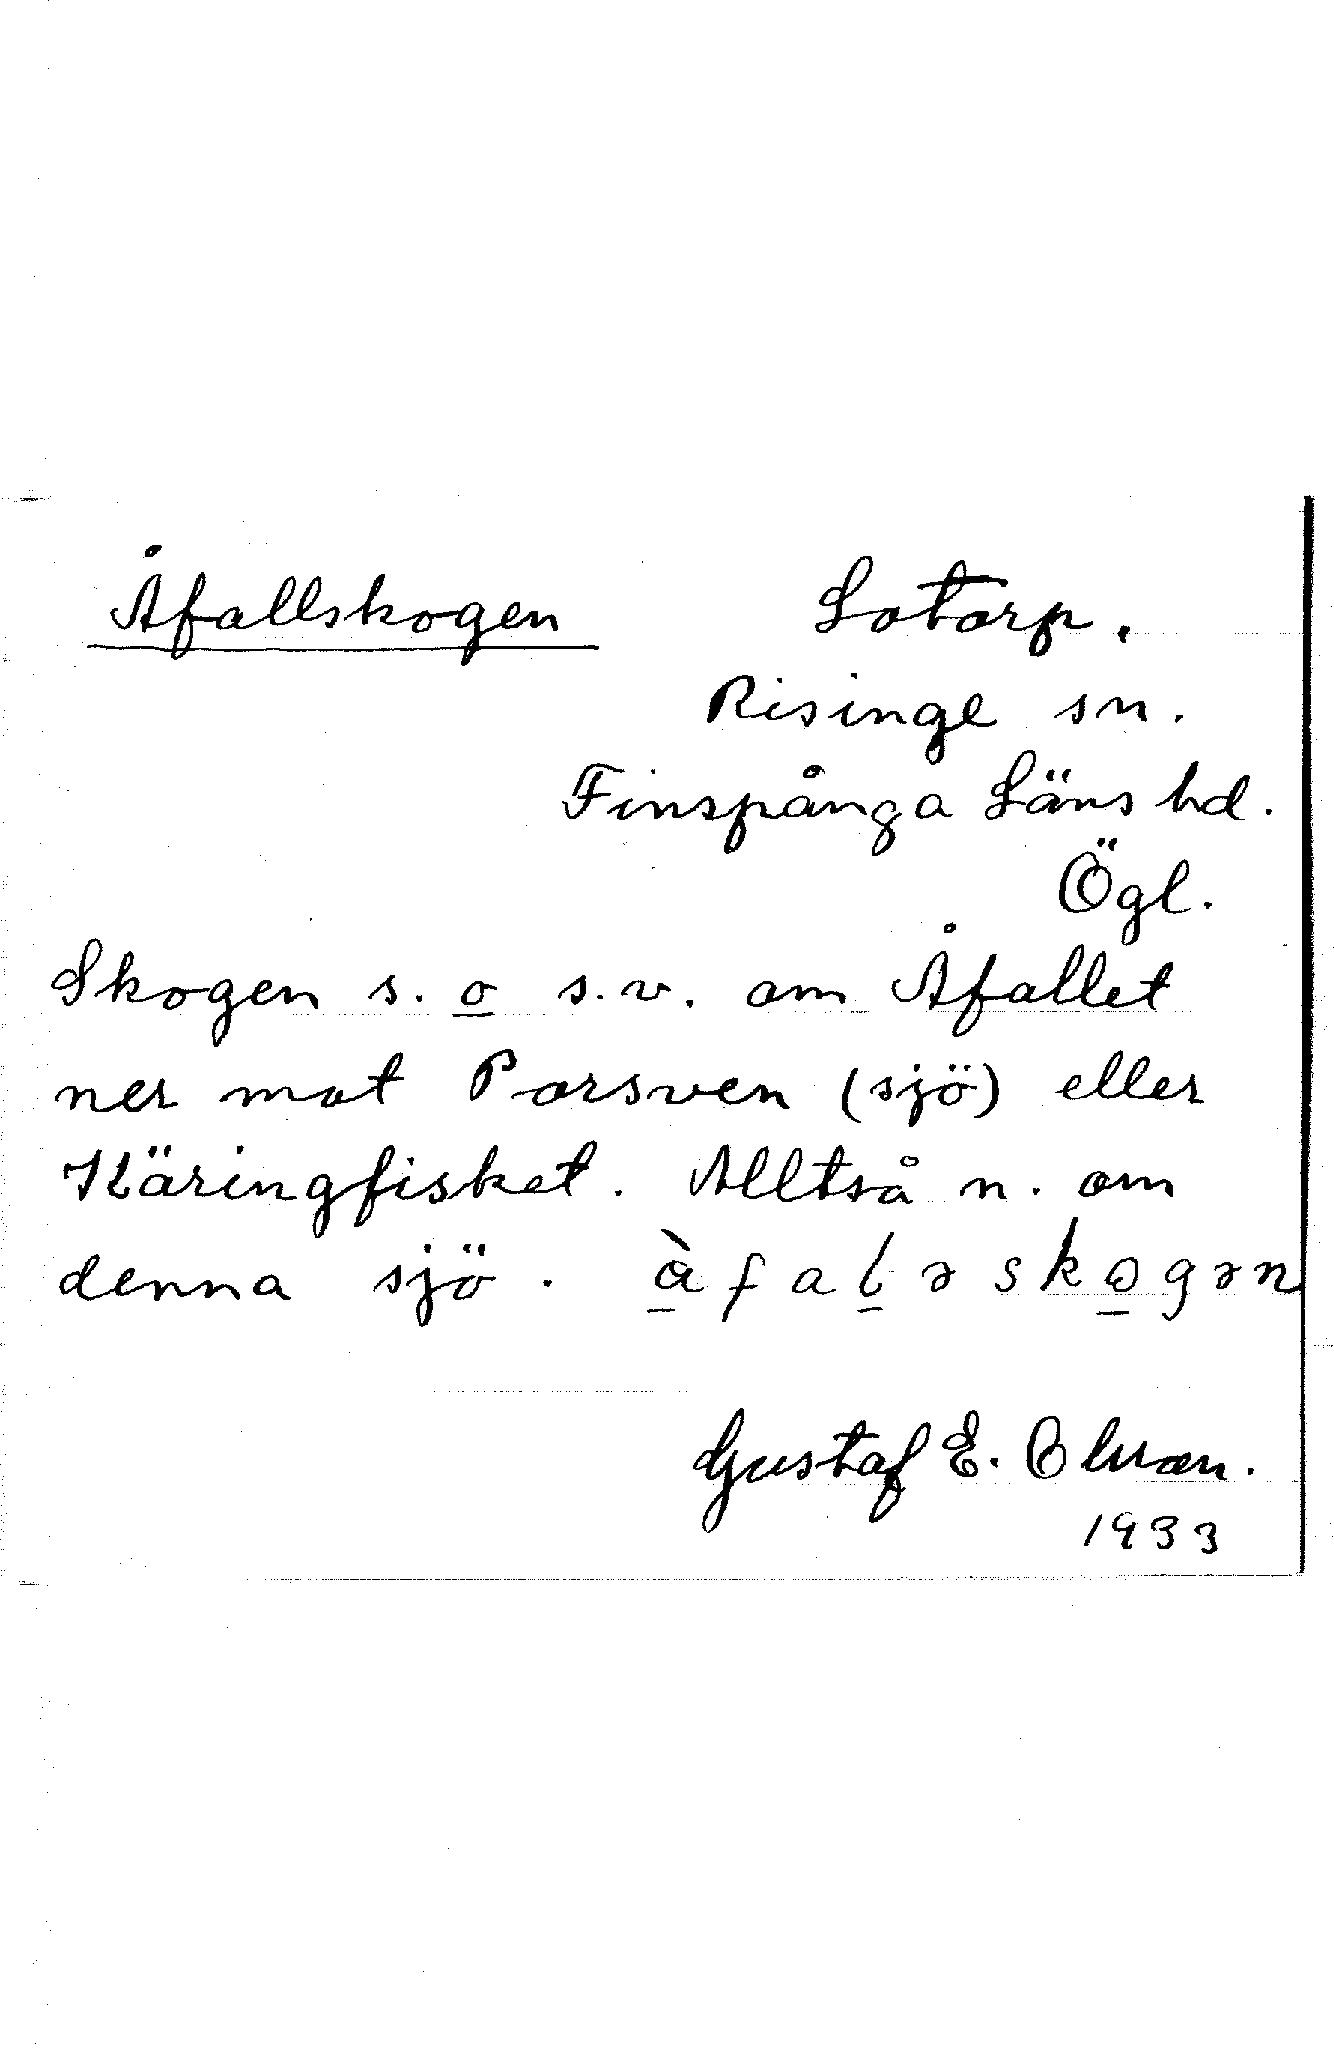 Åfallskogen Lotorp.
Risinge sn.
Finspånga Läns hd.
Ögl.
Skogen s. o s.v. om Åfallet
ner mot Porsven (sjö) eller
Käringfisket. Alltså n. om
denna sjö.
Gustaf E. Olman.
1933